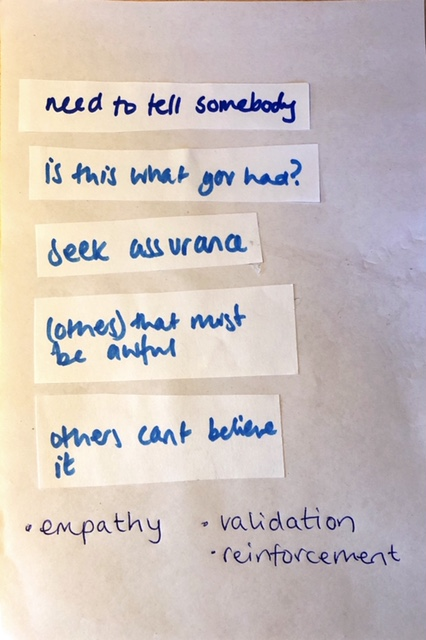 need to tell somebody
is this what you had?
seek assurance
(others) that must
be awful
others cant believe
it
• empathy • validation
• reinforcement